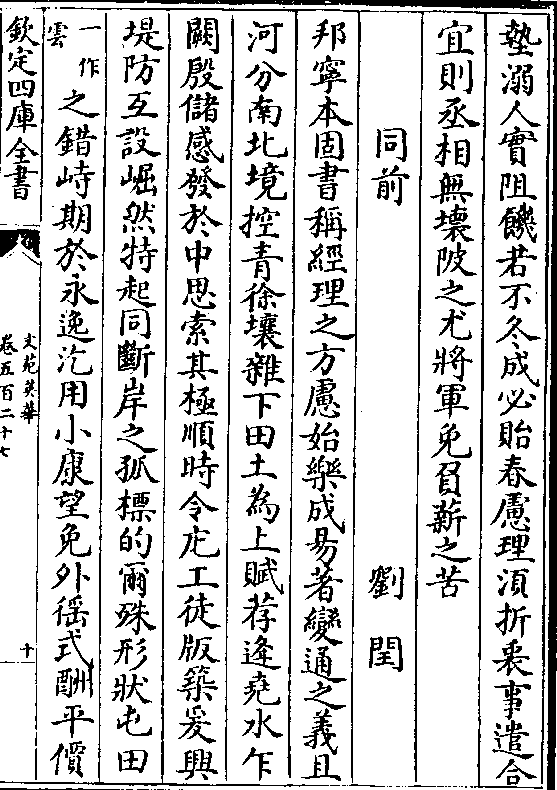 墊溺人實阻饑若不冬成必貽春慮理須折衷事遣合
宜則丞相無壊陂之尤將軍免負薪之苦
同前 劉閏
邦寧本固書稱經理之方慮始樂成易著變通之義且
河分南北境控青徐壤雜下田土為上賦荐逢堯水乍
闕殷儲感發於中思索其極順時令庀工徒版築爰興
堤防互設崛然特起同斷岸之孤標的爾殊形狀屯田
一作雲之錯峙期於永逸汔用小康望免外徭式酬平價
欽定四庫全書
文苑英華
卷五百二十七
十